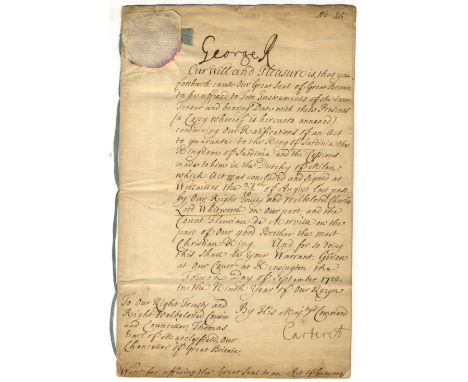 No. 26
George R
Our Will and Pleasure is, that you
forthwith cause Our Great Seal of Great Britain
to be affixed to Two Instruments of the same
Tenour and bearing Date with these Presents
(a Copy whereof is hereunto annexed)
containing Our Ratifications of an Act
to guarantee to the King of Sardinia the
Kingdom of Sardinia and the Cessions
made to him in the Dutchy of Milan;
which Act was concluded and signed at
Versailles the 27th of August last past
by Our Right Trusty and Welbeloved Charles
Lord Whitworth on Our part and the
Count Fleuriau de Morville on the
part of Our good Brother the most
Christian King. And for so doing
this shall be Your Warrant Given
at Our Court at Kensington the
Fourth Day of September 1722
in the Ninth Year of Our Reign
By His Majts Command
Carteret
To Our Right Trusty and
Right Welbeloved Cousin
and Councellor, Thomas
Earl of Macclesfield Our
Chancellor of Great Britain.
Warrt for affixing the Great Seal to an Act of Guaranty